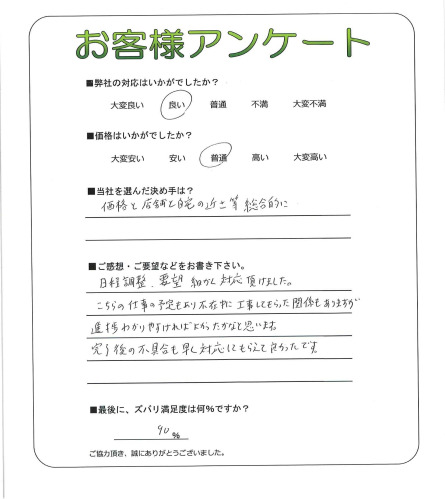 お客様アンケート
■弊社の対応はいかがでしたか？
大変良い 良い 普通 不満 大変不満
■価格はいかがでしたか？
大変安い 安い 普通 高い 大変高い
■当社を選んだ決め手は？
価格と店舗と自宅の近さ等 総合的に
■ご感想・ご要望などをお書き下さい。
日程調整、要望 細かく対応頂けました。
こちらの仕事の予定もあり不在中に工事してもらった関係もありますが
進捗わかりやすければよかったかなと思います。
完了後の不具合も早く対応してもらえて良かったです
■最後に、ズバリ満足度は何%ですか？
90 %
ご協力頂き、誠にありがとうございました。